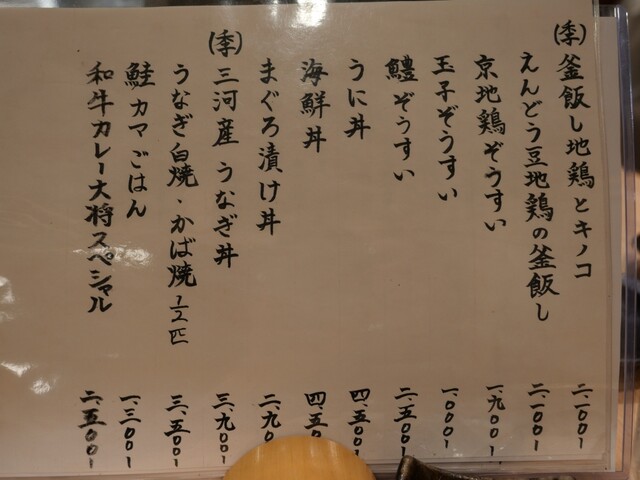 (季)釜飯し地鶏とキノコ 二、一〇〇ー
えんどう豆地鶏の釜飯し 二、一〇〇ー
京地鶏ぞうすい 一、九〇〇ー
玉子ぞうすい 一、〇〇〇ー
鱧ぞうすい 二、五〇〇ー
うに丼 四、五〇〇ー
海鮮丼 四、五〇
まぐろ漬け丼 二、九〇
(季)三河産うなぎ丼 三、九〇〇ー
うなぎ白焼・かば焼1/2匹 三、五〇〇ー
鮭カマごはん 一、三〇〇ー
和牛カレー大将スペシャル 二、五〇〇ー